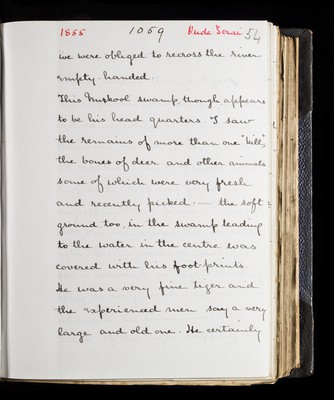 1855 1059 Dude Serai 54
we were obliged to recross the river
empty-handed.
This Muskool swamp, though appears
to be his head quarters. I saw
the remains of more than one "kill",
the bones of deer and other animals
some of which were very fresh
and recently picked. — the soft
ground too, in the swamp leading
to the water in the centre was
covered with his foot-prints.
He was a very fine tiger and
the experienced men say a very
large and old one. He certainly